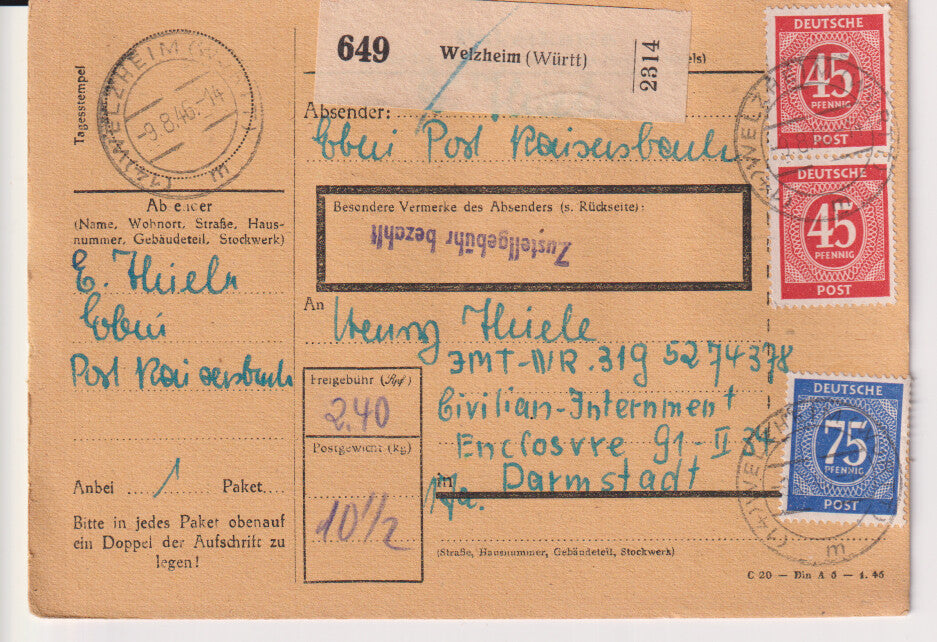 Tagesstempel
(14) WELZHEIM
-9.8.46.-14
m
Absender
(Name, Wohnort, Straße, Haus-
nummer, Gebäudeteil, Stockwerk)
E. Thiele
Ebni
Post Kaisersbach
Anbei 1 Paket
Bitte in jedes Paket obenauf
ein Doppel der Aufschrift zu
legen!
649 Welzheim (Württ) 2314
Absender:
Ebni Post Kaisersbach
Besondere Vermerke des Absenders (s. Rückseite):
Zustellgebühr bezahlt
An Henry Thiele
JMT-NR. 319 5274378
Civilian-Internment
Enclosvre 91-II
in Darmstadt
Freigebühr (Rpf)
2.40
Postgewicht (kg)
10 1/2
(Straße, Hausnummer, Gebäudeteil, Stockwerk)
C 20 — Din A 5 — 1. 46
DEUTSCHE
45
PFENNIG
POST
DEUTSCHE
45
PFENNIG
POST
DEUTSCHE
75
PFENNIG
POST
m